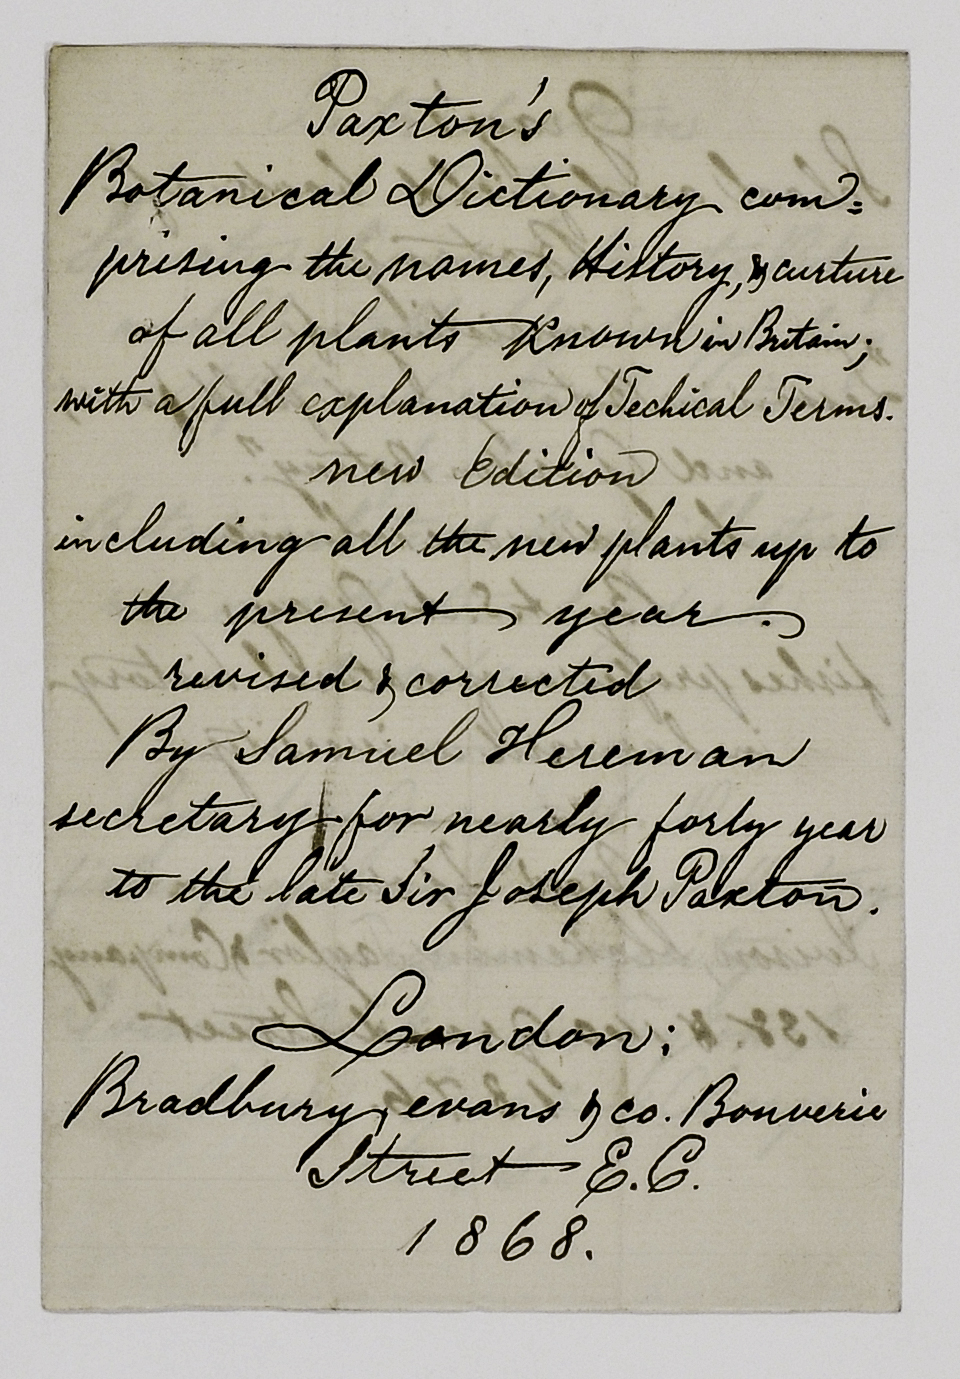 Paxton's
Botanical Dictionary com=
prising the names, History, & curture
of all plants Known in Britain;
with a full explanation of Techical Terms.
new Edition
including all the new plants up to
the present year.
revised & corrected
By Samuel Hereman
secretary for nearly forly year
to the late Sir Joseph Paxton.
London;
Bradbury, evans & co. Bouverie
Street E.C.
1868.